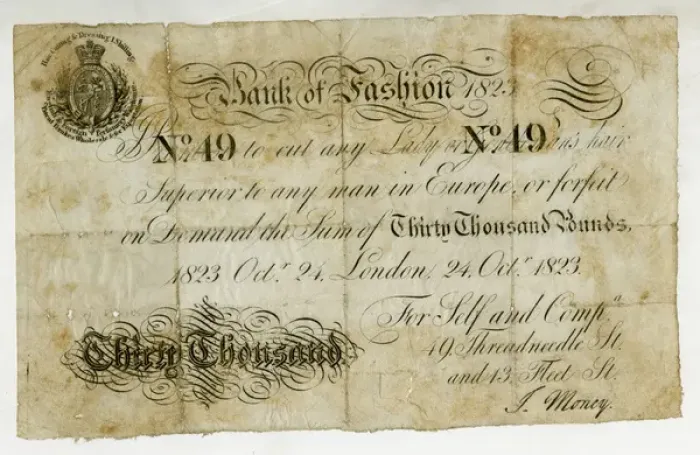 Hair Cutting & Dressing 1 Shilling
Bank of Fashion 1823
No 49 No 49
to cut any Lady or Gentleman's hair
Superior to any man in Europe, or forfeit
on Demand the Sum of Thirty Thousand Pounds,
1823 Octr 24. London, 24. Octr 1823.
For Self and Compa
Thirty Thousand
49, Threadneedle St.
and 13, Fleet St.
J. Money.